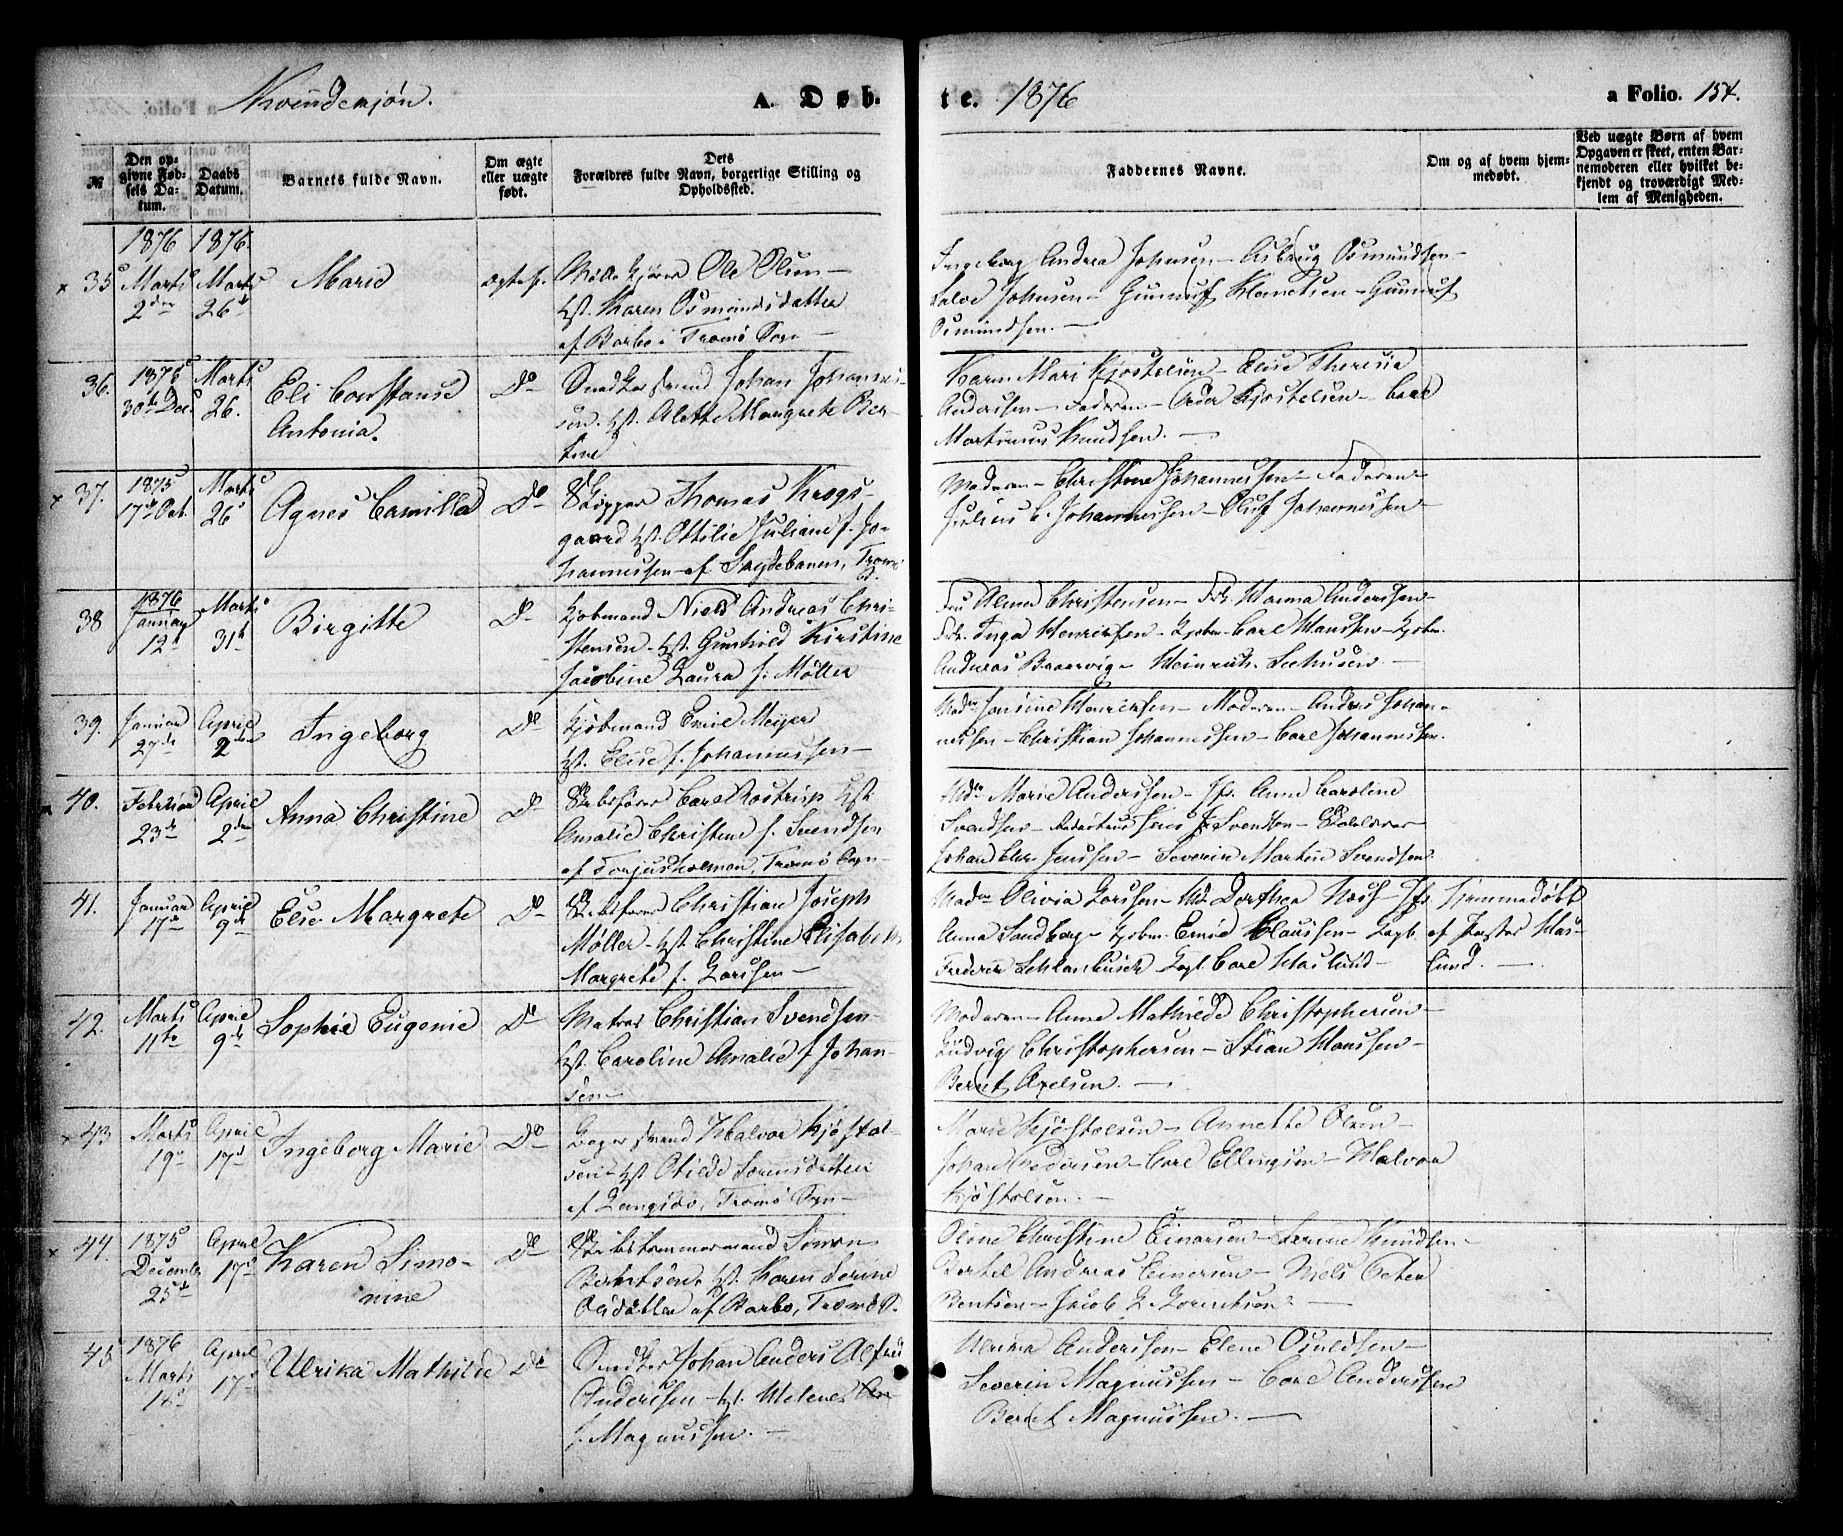 Kvindekjön.
A. Döb-
te. 1876
a Folio. 154.
№
Den op-
givne Fød-
sels Da-
tum.
Daabs
Datum.
Barnets fulde Navn.
Om ægte
eller uægte
født.
Dets
Forældres fulde Navn, borgerlige Stilling og
Opholdssted.
Faddernes Navne.
Om og af hvem hjem-
medøbt.
Ved uægte Børn af hvem
Opgaven er skeet, enten Bar-
nemoderen eller hvilket be-
kjendt og troværdigt Med-
lem af Menigheden.
35
1876
Marts
2den
1876.
Marts
26de
Marie
ægtef.
Ole Olsen-
Hst. Karen Osmundsdatter
af Barbo i Tromö Sogn-
Ingeborg Andrea Johnsen- Asbaug Osmundsen-
Salve Johnsen- Gunnuf Kanutsen- Gunnuf
Osmundsen.-
36.
1875
30te Dec
Marts
26.
Eli Constanse
Antonia.
Do
Smedker svend Johan Johannes-
sen- Hst. Alette Margrete Ber-
tine
Karen Mari Kjöstelsen- Elise Theresia
Andersen- Faderen- Peder Kjöstelsen- Carl
Martinius Knudsen.-
37.
1875
17de Oct.
Marts
26
Agnes Camilla
Do
Skipper Thomas Krogs-
gaard Hst. Ottilie Juliane f. Jo-
hannessen- af Skydebanen, Tromö
S.
Moderen- Christine Johannessen- Faderen-
Julius C. Johannessen- Oluf Johannessen-
38
1876
Januar
12te
Marts
31te
Birgitte
Do
Kjöbmand Niels Andreas Chri-
stensen- Hst. Gunhild Kirstine
Jacobine Laura f. Møller
Fru Alma Christensen- Frk. Hanna Andersen-
Frk. Inga Henriksen- Kjobm. Carl Hanssen- Kjobm.
Andreas Baarvig- Heinrich Seehusen-
39.
Januar
27de
April
2den
Ingeborg
Do
Kjöbmand Emil Meijer
Hst. Elise f. Johannessen-
Mad. Jensine Henriksen- Moderen- Andreas Johan-
nessen- Christian Johannessen- Carl Johannessen.
40.
Februar
23de
April
2den
Anna Christine
Do
Skibsfører Carl Rostrup Hst
Amalie Christine f. Svendsen
af Torjusholmen, Tromö Sogn-
Md. Marie Anderssen- Jfr. Anne Caroline
Svendsen- Jens J. Svendsen-
Johan Chr. Jenssen- Severin Martin Svendsen.
41.
Januar
17de
April
9de
Else Margrete
Do
Skibsfører Christian Joseph
Møller- Hst. Christine Elisabeth
Margrete f. Larssen-
Madm Olivia Larssen- Md. Dorthea Naas Jfr
Anna Sandberg- Kjobm. Emil Claussen- Capt.
Frederik Schlanbusch Capt. Carl Haslund-
Hjemmedøbt
af Pastor Has-
lund.-
42.
Marts
11te
April
9de
Sophie Eugenie
Do
Matros Christian Svendsen-
Hst. Caroline Amalie f. Johan-
sen-
Moderen- Anne Mathilde Christophersen-
Ludvig Christophersen- Stian Hanssen-
Bernt Axelsen.-
43
Marts
19
April
17de
Ingeborg Marie
Do
Bager svend Halvor Kjöstol-
sen- Hst Otilde Sørensdatter
af Langsæ, Tromö Sogn-
Marie Kjöstolsen- Annette Olsen-
Johan Pedersen- Carl Ellingsen- Halvor
Kjöstolsen.-
44.
1875
Decembr
25de
April
17de
Karen Simo-
nine
Do
Skibstømmermand Simon
Berntsen, Hst. Karen Serine
af Barbo, Tromö S.
Oline Christine Einarsen- Serine Knudsen-
Bertel Andreas Einarsen- Niels Peter
Bentsen- Jacob L. Lorentsen-
45
1876
Marts
14de
April
17de
Ulrika Mathilde
Do
Smedker Johan Anders Alfred
Anderssen- Hst. Helene
f. Magnussen.-
Ulrikka Anderssen- Elene Osuldsen-
Severin Magnussen- Carl Anderssen
Bernt Magnussen.-